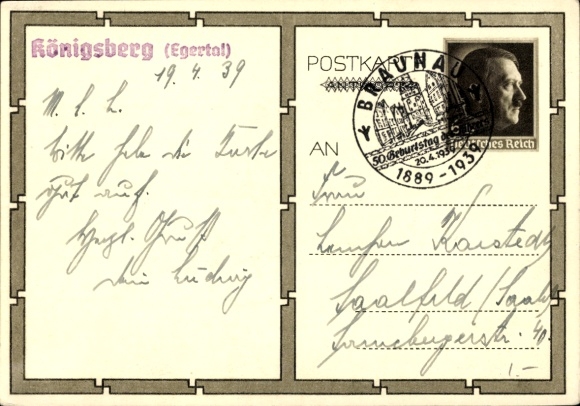 Königsberg (Egertal)
19.4.39
M. l. L.
bitte hebe die Karte
gut auf.
Herzl. Gruß
dein Ludwig
POSTKARTE
ANTWORT
BRAUNAU
50. Geburtstag des
20.4.1939
1889-1939
Deutsches Reich
AN
Frau
Karstedt
Saalfeld (Saale)
40.
1.-